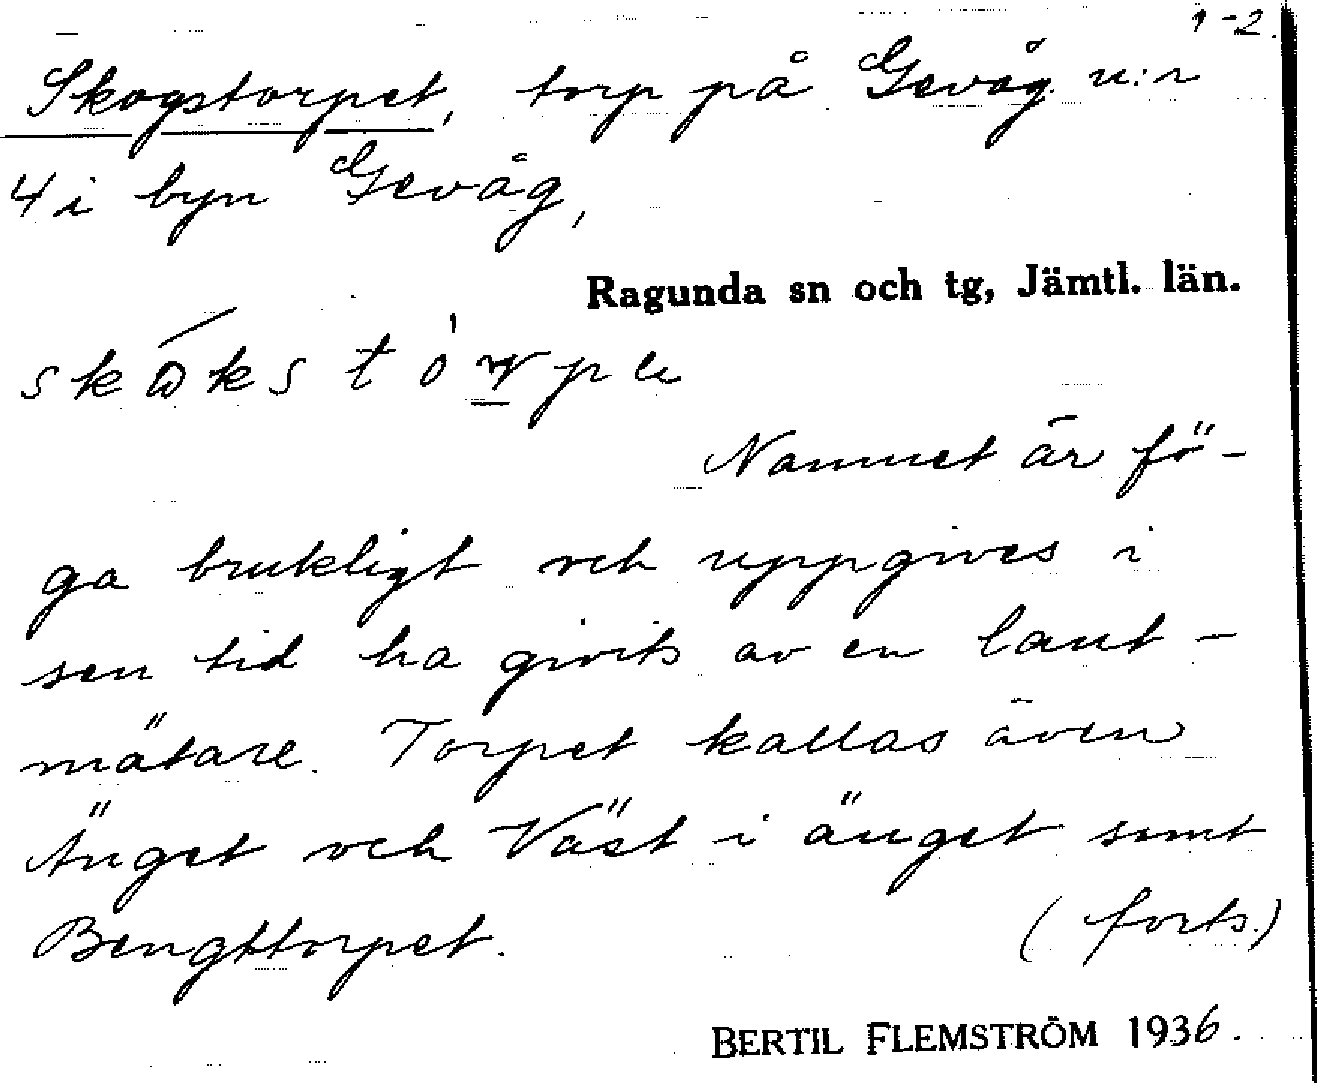 1-2.
Skogstorpet, torp på Gevåg n:r
4 i byn Gevåg,
Ragunda sn och tg, Jämtl. län.
Namnet är fö-
ga brukligt och uppgives i
sen tid ha givits av en lant-
mätare. Torpet kallas även
Änget och Väst i änget samt
Bengttorpet. (forts.)
BERTIL FLEMSTRÖM 1936.